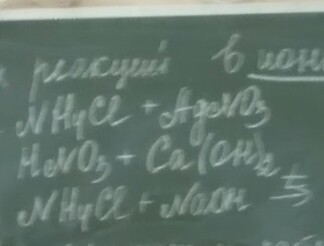 реакций в ион
NH4Cl + AgNO3
HNO3 + Ca(OH)2
NH4Cl + NaOH →